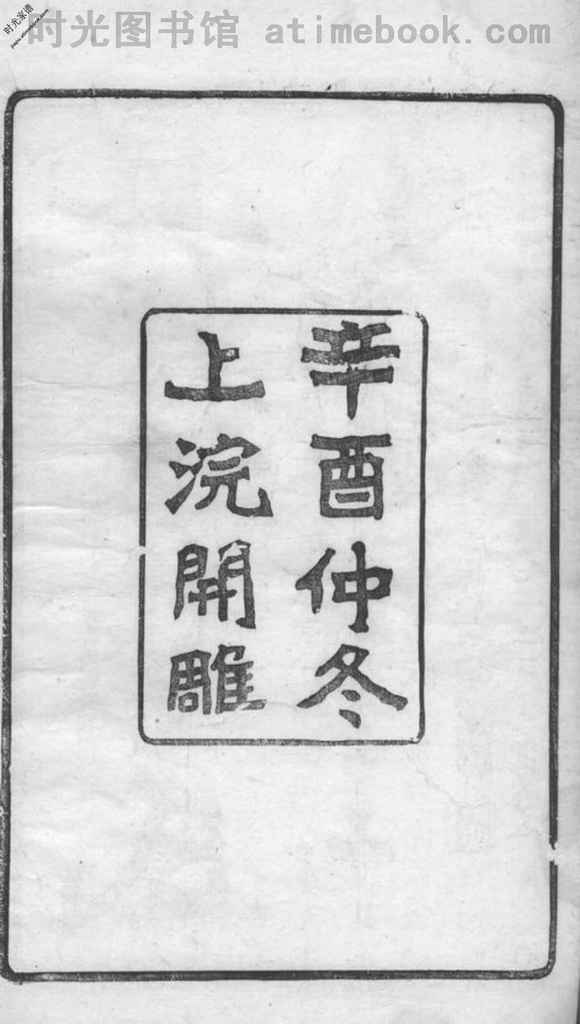 时光图书馆 atimebook.com
时光家谱
辛酉仲冬
上浣開雕